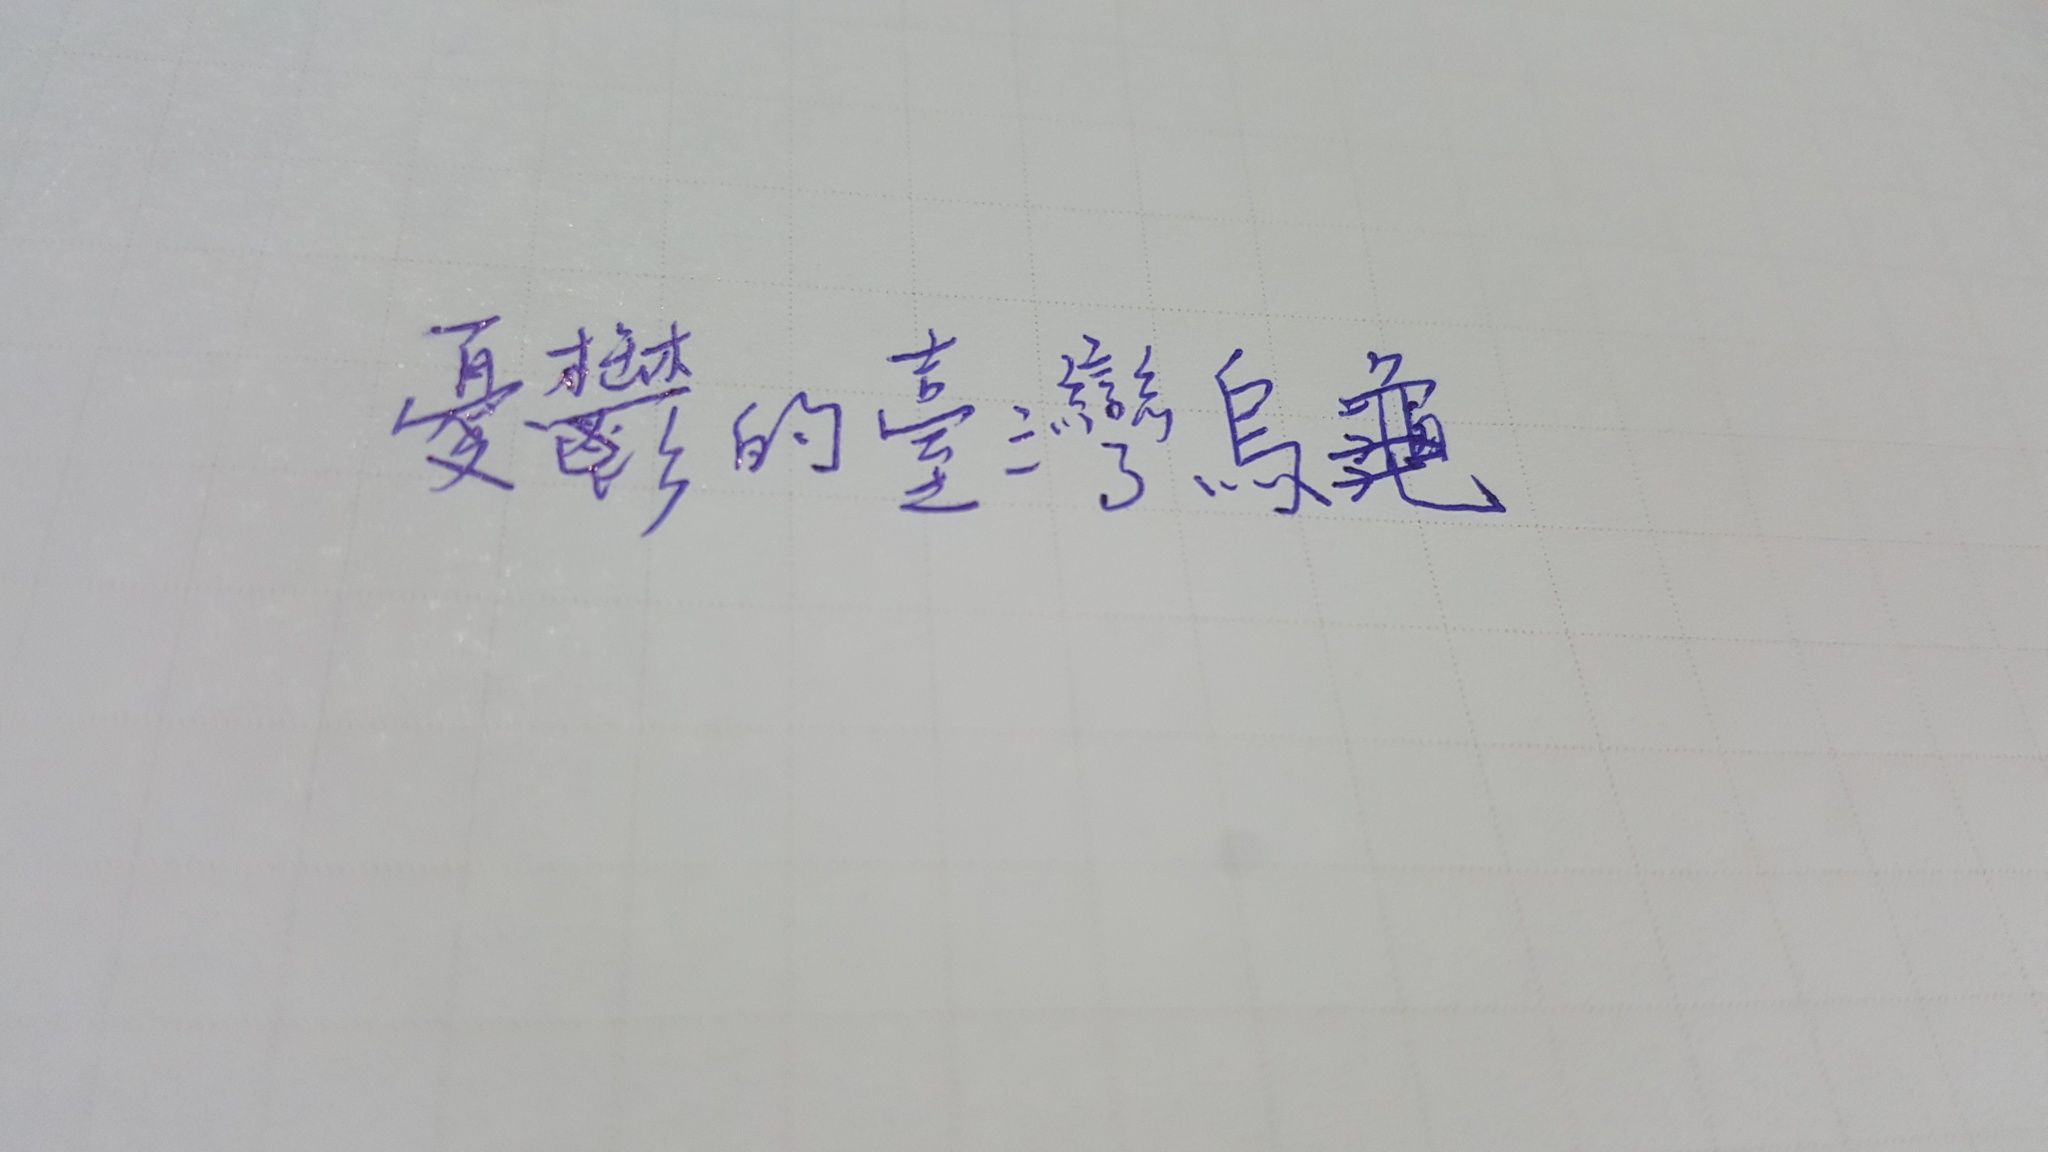 憂鬱的臺灣烏龜